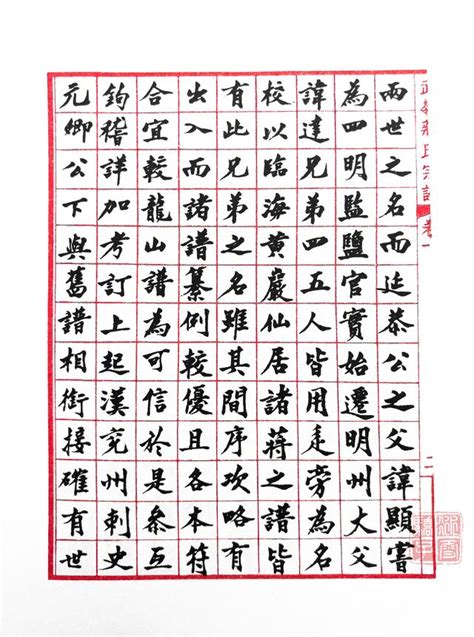 武嶺蔣氏宗譜 卷一 二
兩世之名而延恭公之父諱顯嘗
為四明監鹽官實始遷明州大父
諱達兄弟四五人皆用辵旁為名
校以臨海黃巖仙居諸蔣之譜皆
有此兄弟之名雖其間序次略有
出入而諸譜纂例較優且各本符
合宜較龍山譜為可信於是參互
鉤稽詳加考訂上起漢兗州刺史
元卿公下與舊譜相銜接確有世